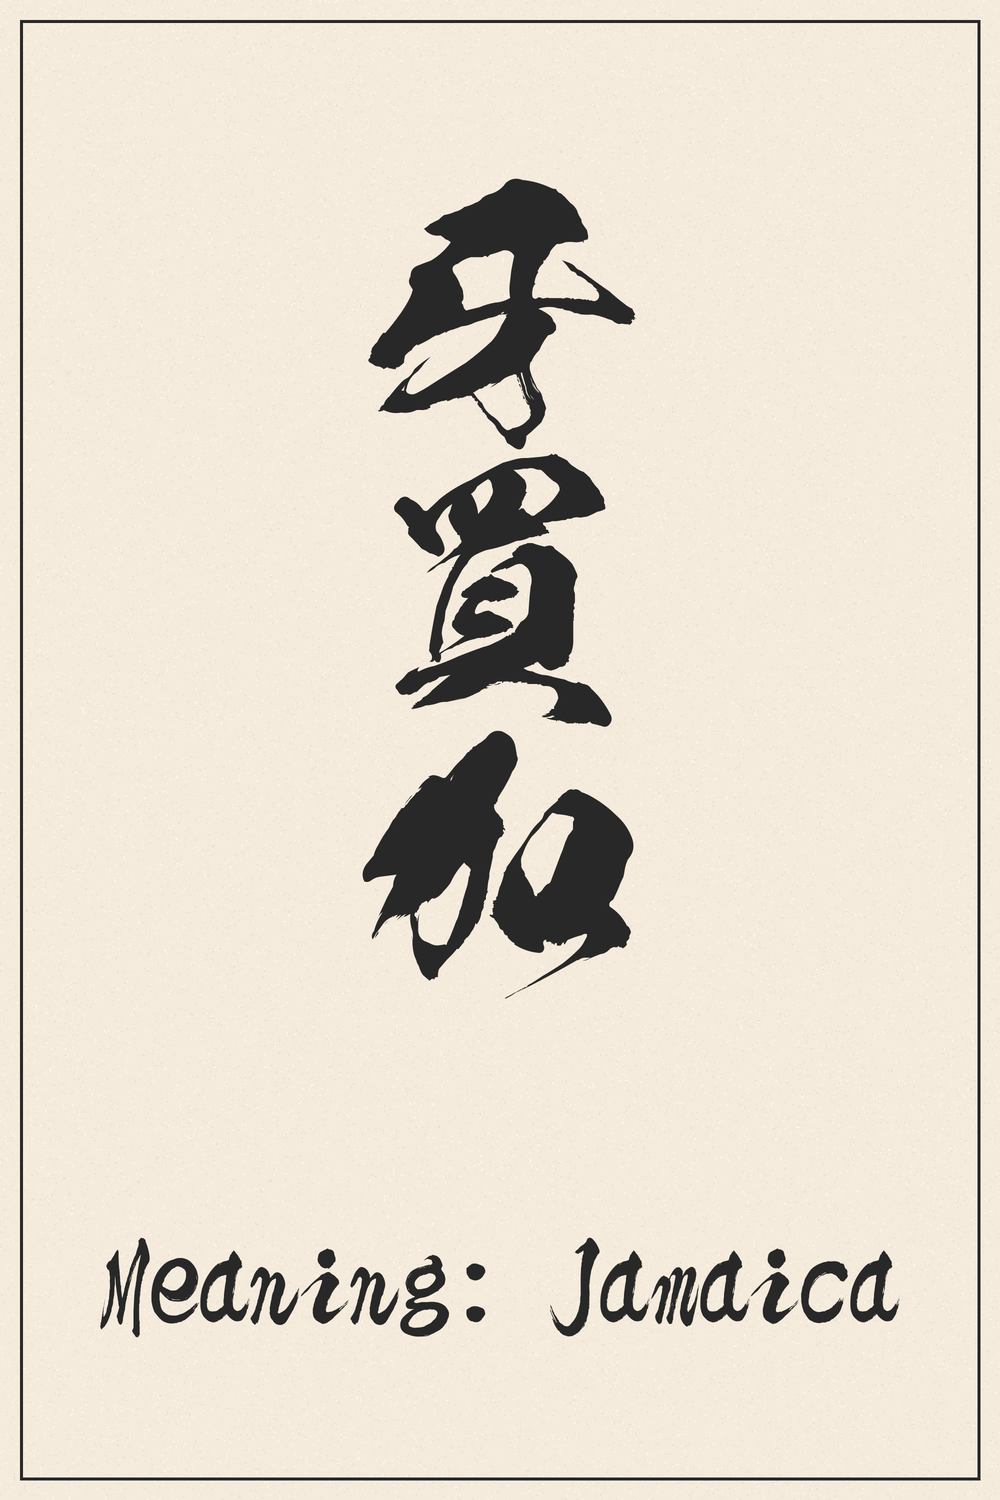 牙買加
Meaning: Jamaica